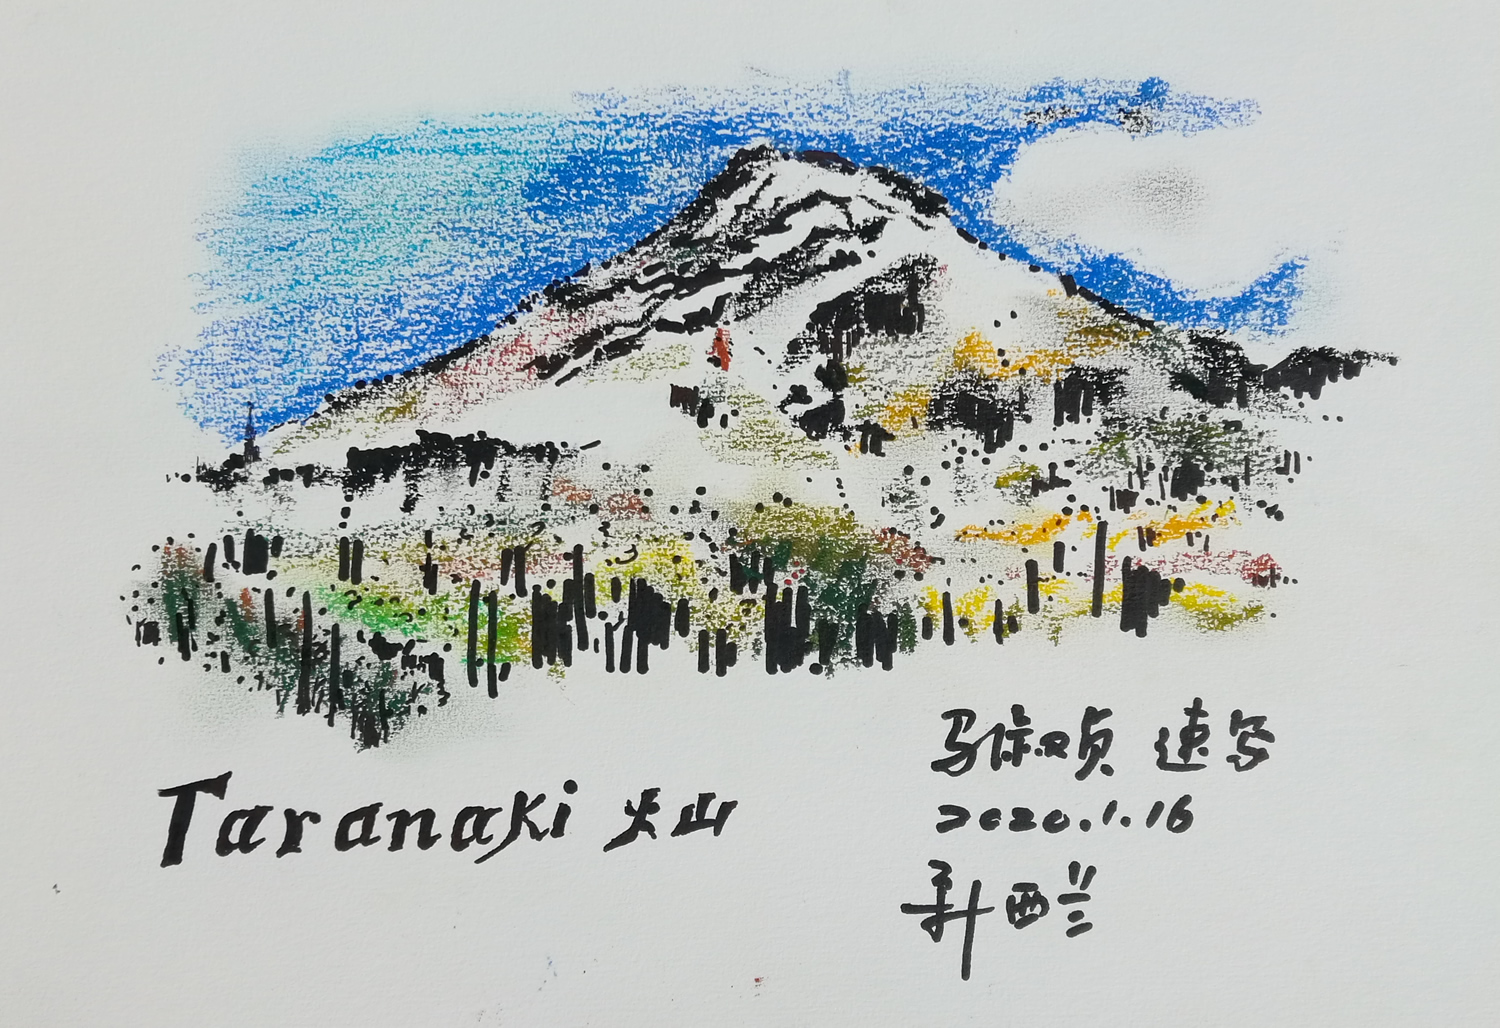 Taranaki 火山
马 速写
2020.1.16
新西兰